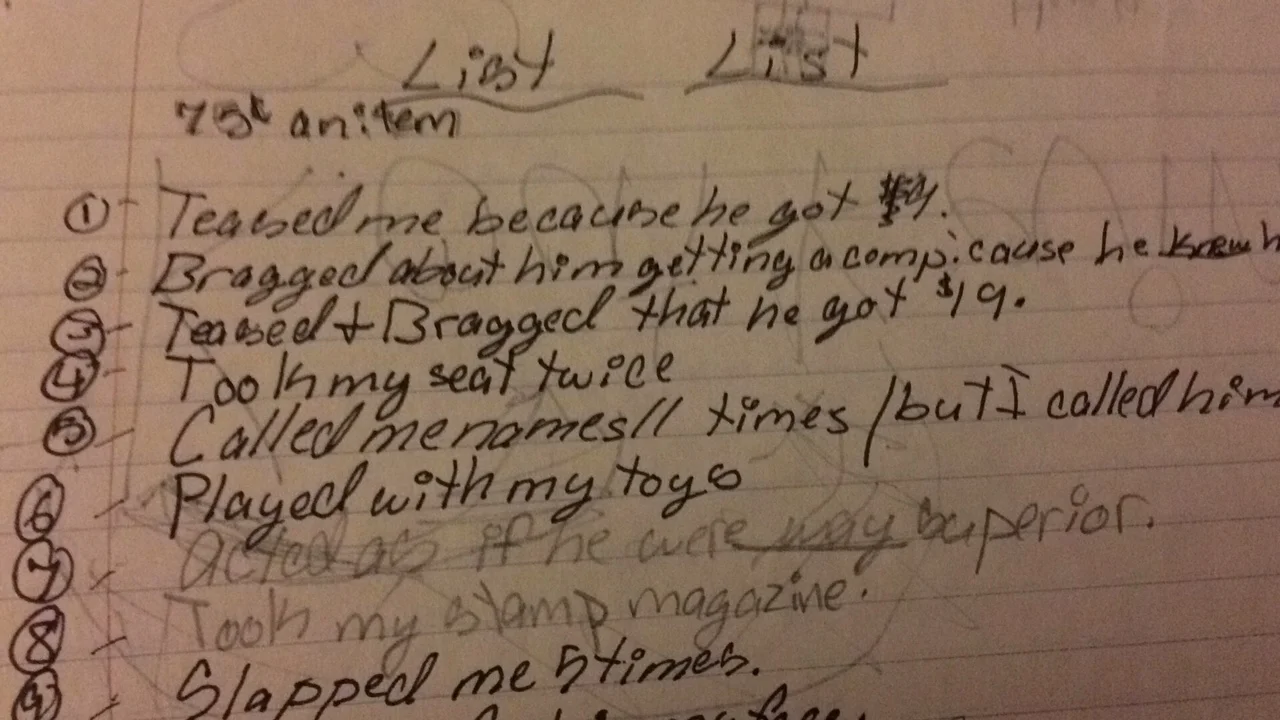 List List
75¢ an item
① Teased me because he got $4.
② Bragged about him getting a comp. cause he knew
③ Teased + Bragged that he got $19.
④ Took my seat twice
⑤ Called me names 11 times / but I called him
⑥ Played with my toys
⑦ acted as if he were way superior.
⑧ Took my stamp magazine.
⑨ Slapped me 5 times.